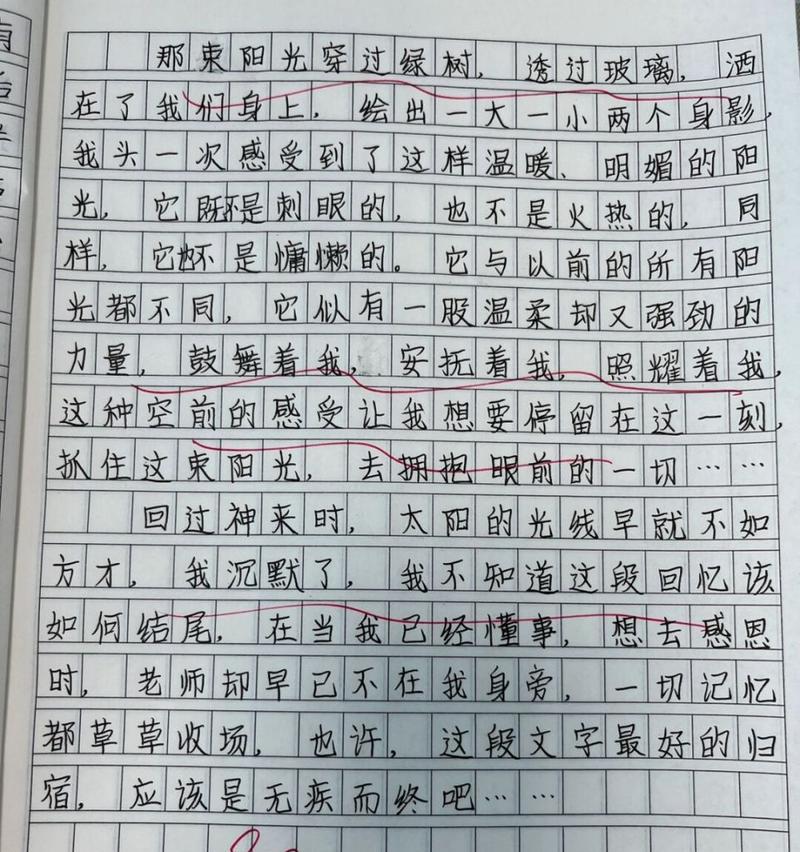 那束阳光穿过绿树，透过玻璃，洒
在了我们身上，绘出一大一小两个身影，
我头一次感受到了这样温暖、明媚的阳
光，它既不是刺眼的，也不是火热的，同
样，它也不是慵懒的。它与以前的所有阳
光都不同，它似有一股温柔却又强劲的
力量，鼓舞着我，安抚着我，照耀着我，
这种空前的感受让我想要停留在这一刻，
抓住这束阳光，去拥抱眼前的一切……
回过神来时，太阳的光线早就不如
方才，我沉默了，我不知道这段回忆该
如何结尾，在当我已经懂事，想去感恩
时，老师却早已不在我身旁，一切记忆
都草草收场，也许，这段文字最好的归
宿，应该是无疾而终吧……